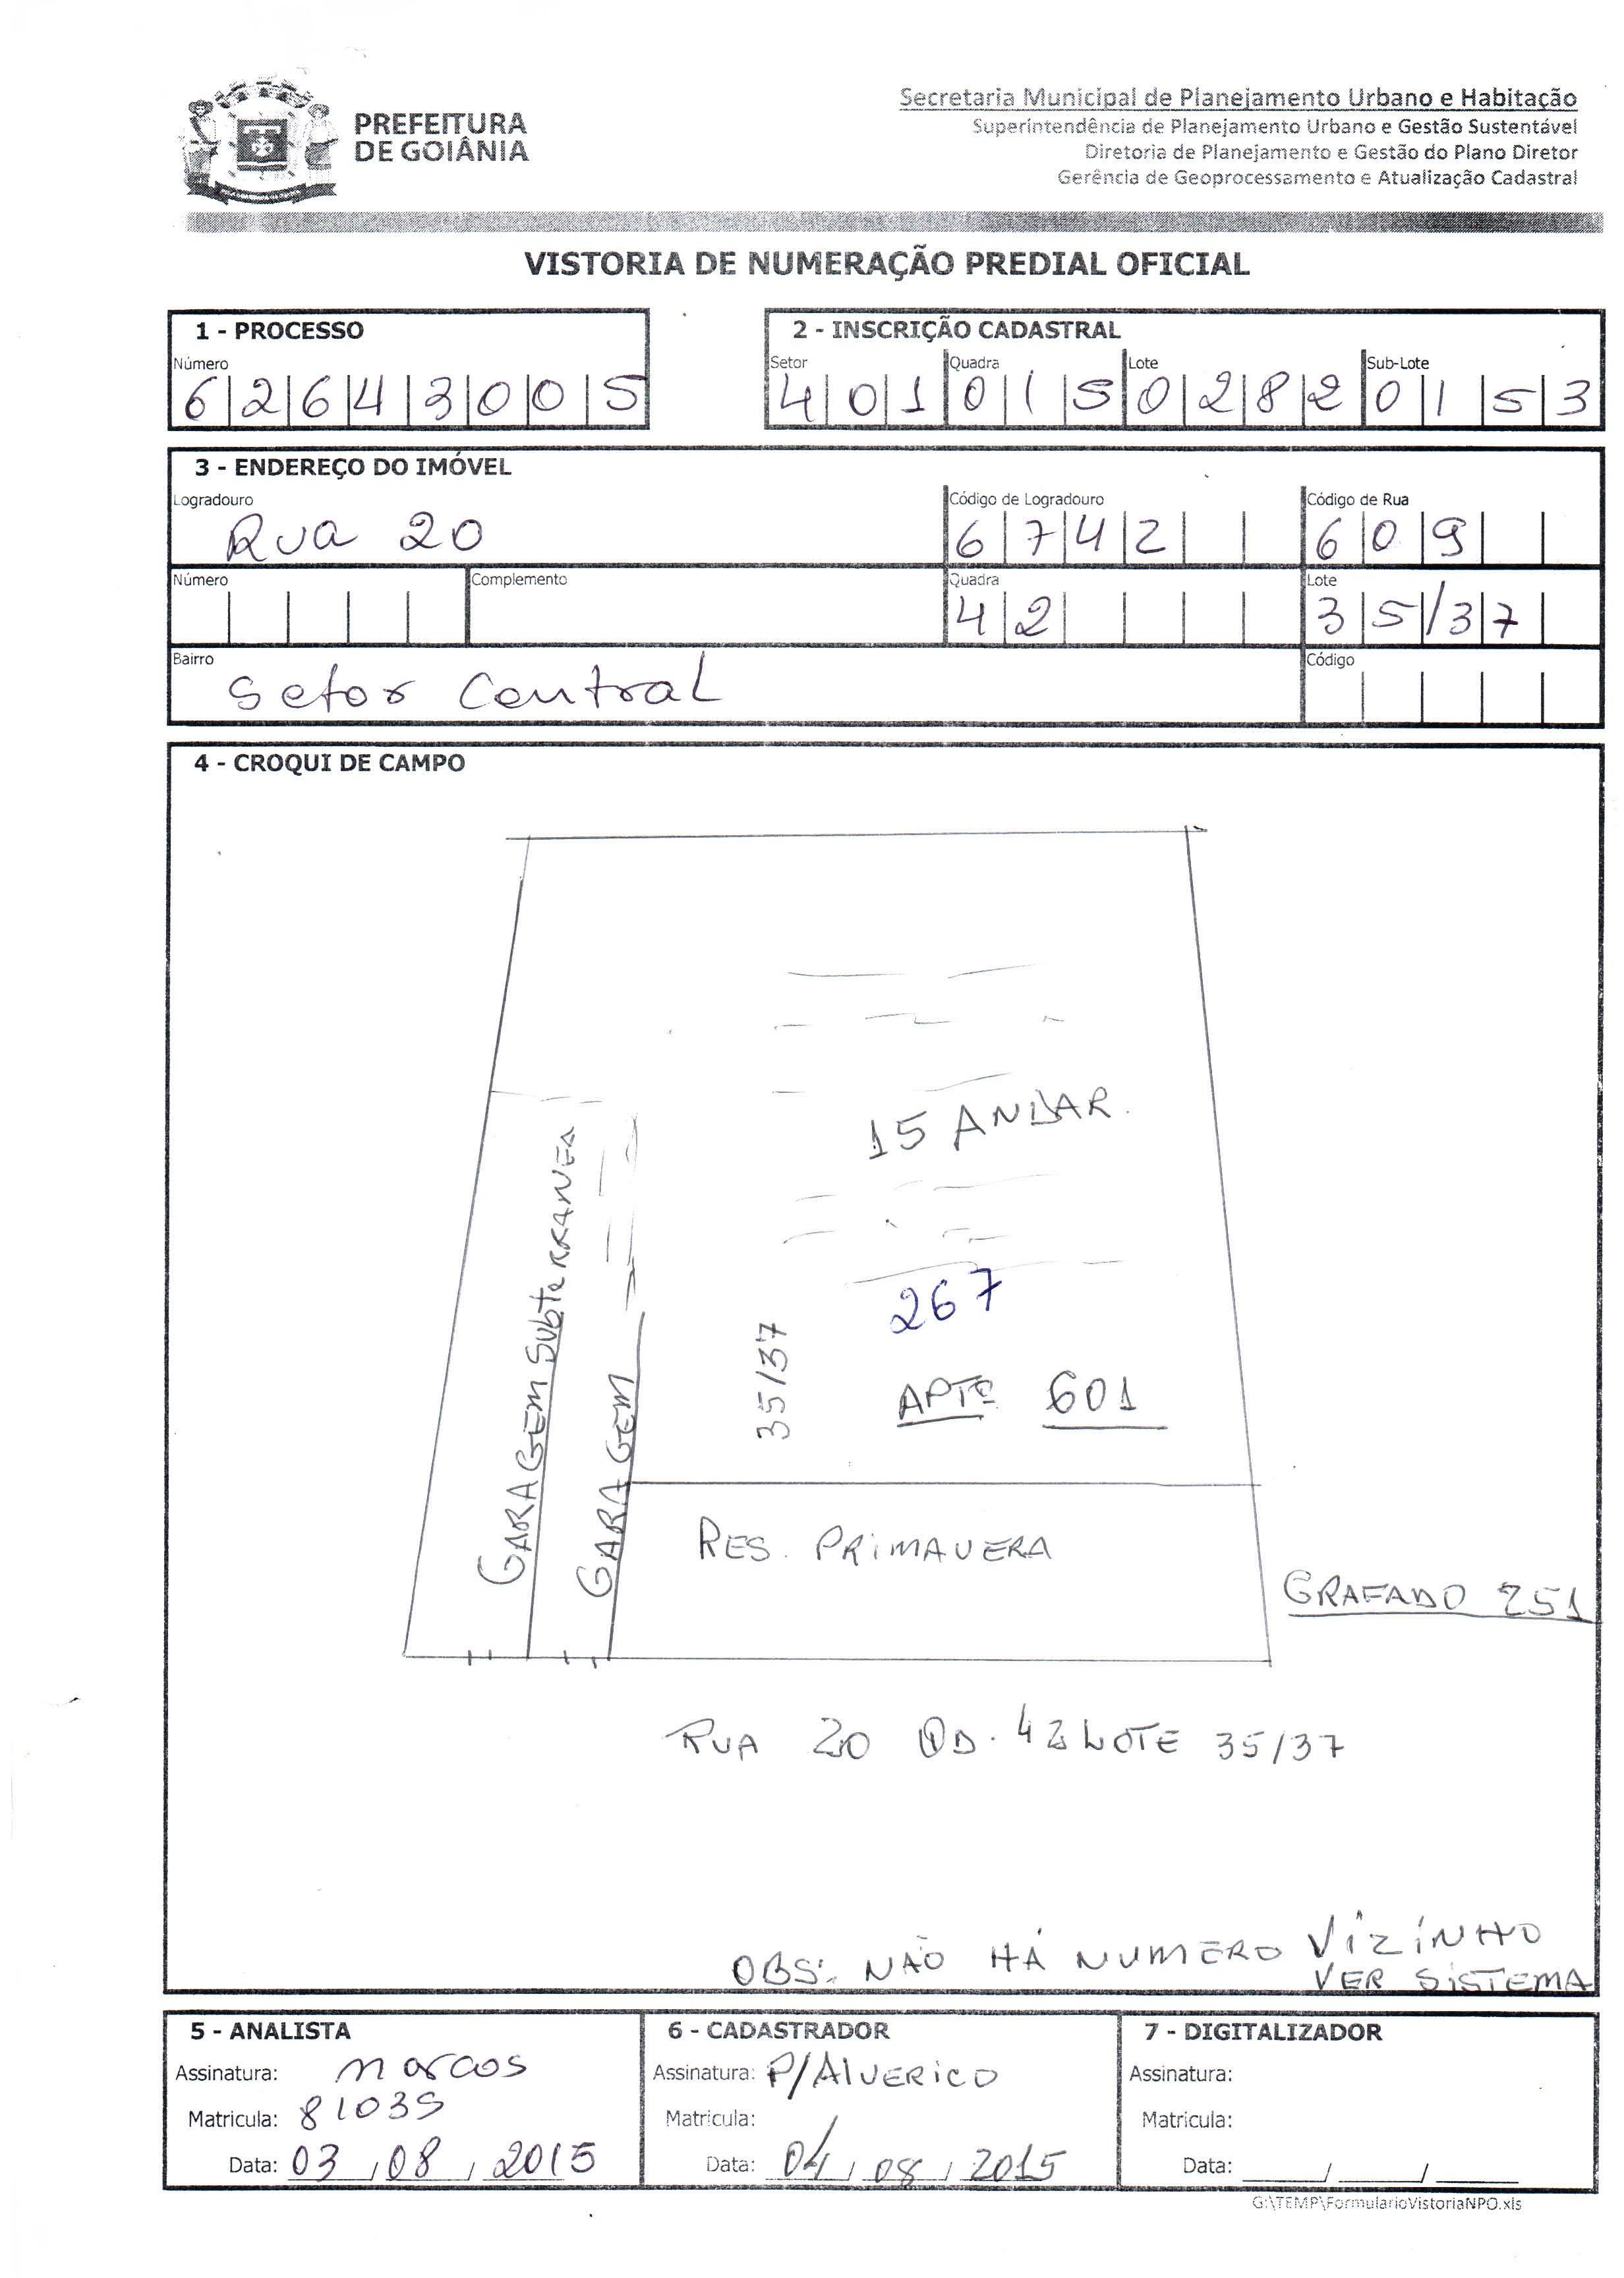 PREFEITURA
DE GOIÂNIA
Secretaria Municipal de Planejamento Urbano e Habitação
Superintendência de Planejamento Urbano e Gestão Sustentável
Diretoria de Planejamento e Gestão do Plano Diretor
Gerência de Geoprocessamento e Atualização Cadastral
VISTORIA DE NUMERAÇÃO PREDIAL OFICIAL
1 - PROCESSO
Número
6 2 6 4 3 0 0 5
2 - INSCRIÇÃO CADASTRAL
Setor Quadra Lote Sub-Lote
4 0 1 0 1 5 0 2 8 2 0 1 5 3
3 - ENDEREÇO DO IMÓVEL
Logradouro Código de Logradouro Código de Rua
Rua 20 6 7 4 2 6 0 9
Número Complemento Quadra Lote
4 2 3 5 / 3 7
Bairro Código
Setor Central
4 - CROQUI DE CAMPO
15 ANDAR.
GARAGEM SubteRRANEA
GARAGEM
35/37
267
APTº 601
RES. PRIMAVERA
GRAFADO 251
RUA 20 QD. 42 LOTE 35/37
OBS: NÃO HÁ NUMERO VIZINHO
VER SISTEMA
5 - ANALISTA
Assinatura: Marcos
Matricula: 81039
Data: 03 / 08 / 2015
6 - CADASTRADOR
Assinatura: P/AlVERICO
Matricula:
Data: 04 / 08 / 2015
7 - DIGITALIZADOR
Assinatura:
Matricula:
Data: ____/____/____
G:\TEMP\FormularioVistoriaNPO.xls